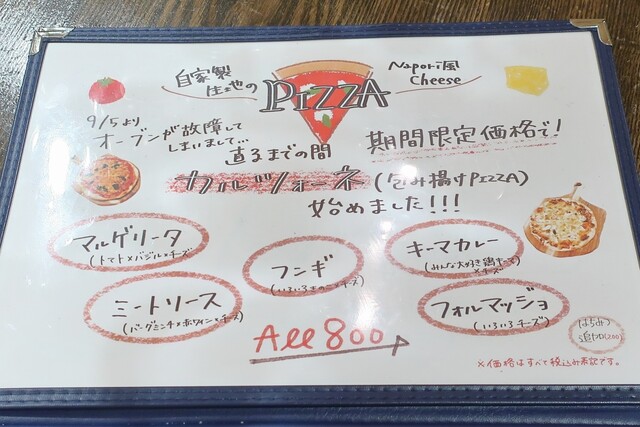 自家製
生地の
PIZZA
Napori風
Cheese
9/5より
オーブンが故障して
しまいまして…
直るまでの間
期間限定価格で!
カルツォーネ(包み揚げPIZZA)
始めました!!!
マルゲリータ
(トマト×バジル×チーズ
フンギ
(いろいろきのこ×チーズ)
キーマカレー
(みんな大好き鶏キーマ
×チーズ
ミートソース
(バーグミンチ×赤ワイン×チーズ)
フォルマッジョ
(いろいろチーズ)
All 800
はちみつ
追加(200)
※価格はすべて税込み表記です。